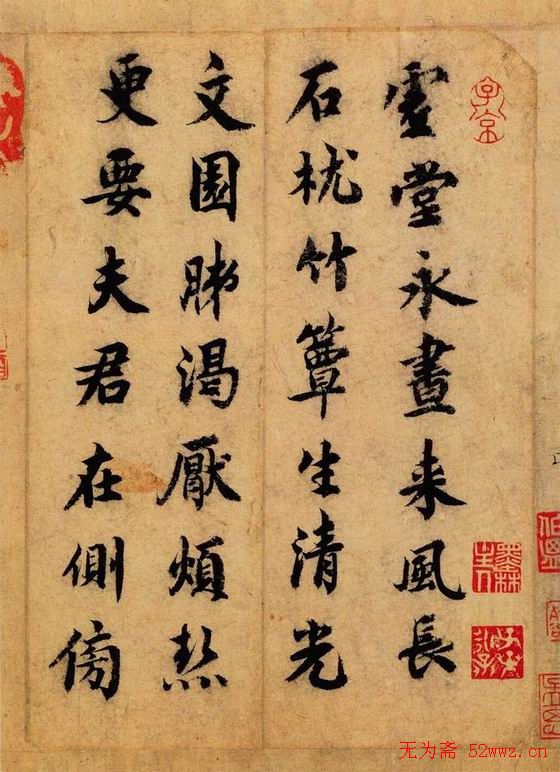 虚堂永晝来風長
石枕竹簟生清光
文園肺渴厭煩熱
更要夫君在側傍
子京
无为斋 52wwz.cn